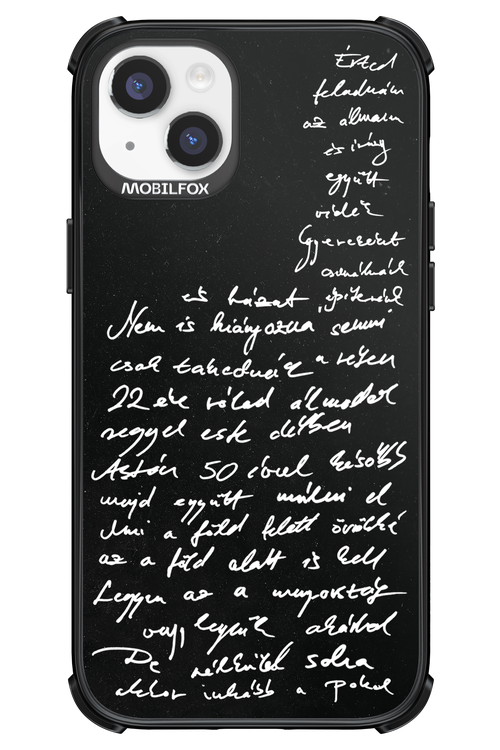 MOBILFOX
Érted
feladnám
az álmaim
és irány
együtt
vidék
Gyerekeket
csinálnánk
és házat építenénk
Nem is hiányozna semmi
csak takednék a héten
22 éve rólad álmodok
reggel este délben
Aztán 50 évvel később
majd együtt múlni el
Ami a föld felett örökké
az a föld alatt is kell
Legyen az a mennyország
vagy legyünk akárhol
De nélküled soha
akkor inkább a Pokol